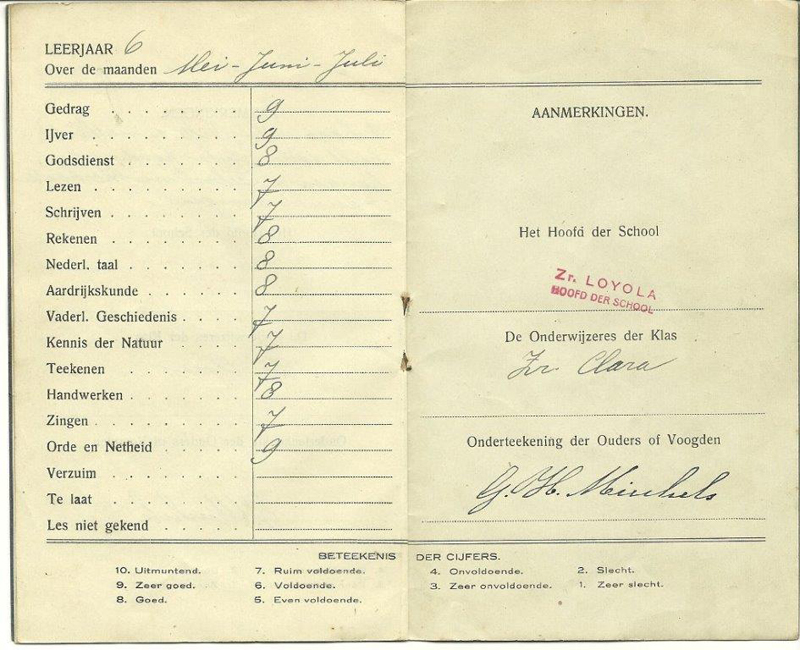 LEERJAAR 6
Over de maanden Mei-Juni-Juli
Gedrag 9
IJver 9
Godsdienst 8
Lezen 7
Schrijven 7
Rekenen 8
Nederl. taal 8
Aardrijkskunde 8
Vaderl. Geschiedenis 7
Kennis der Natuur 7
Teekenen 7
Handwerken 8
Zingen 7
Orde en Netheid 9
Verzuim
Te laat
Les niet gekend
AANMERKINGEN.
Het Hoofd der School
Zr. LOYOLA
HOOFD DER SCHOOL
De Onderwijzeres der Klas
Zr. Clara
Onderteekening der Ouders of Voogden
G. H.
BETEEKENIS DER CIJFERS.
10. Uitmuntend. 7. Ruim voldoende. 4. Onvoldoende. 2. Slecht.
9. Zeer goed. 6. Voldoende. 3. Zeer onvoldoende. 1. Zeer slecht.
8. Goed. 5. Even voldoende.